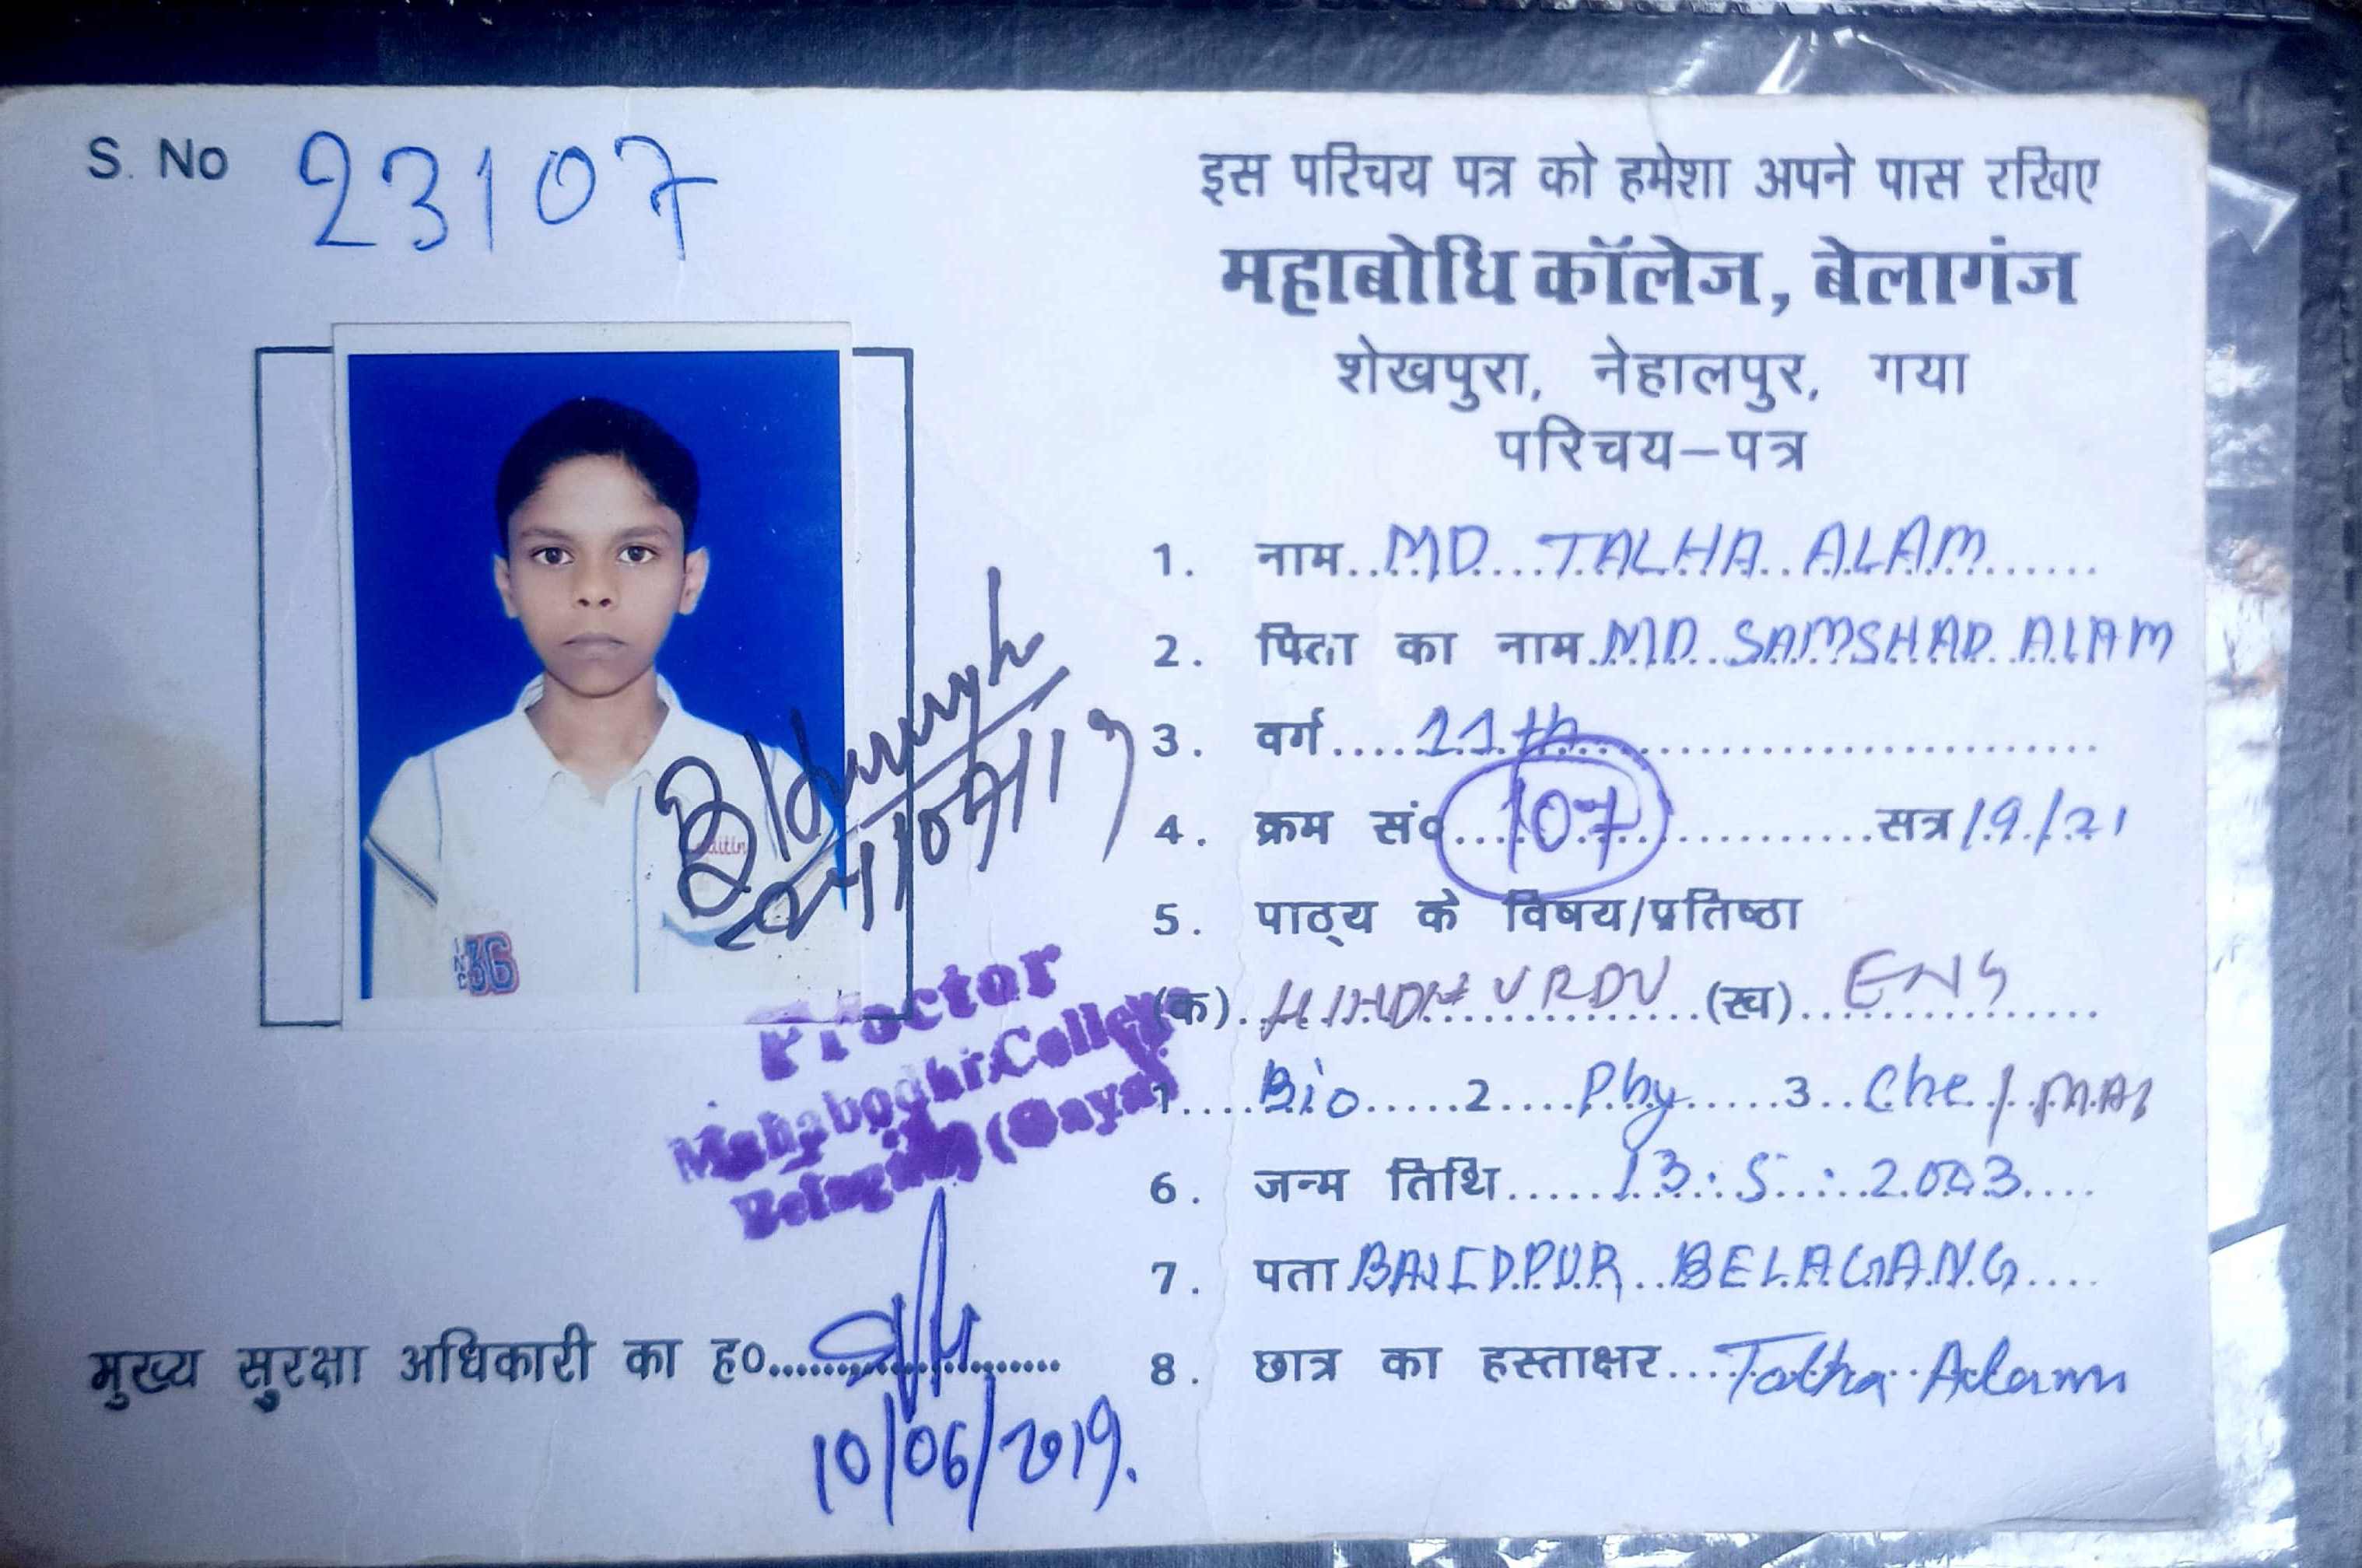 S. No 23107
इस परिचय पत्र को हमेशा अपने पास रखिए
महाबोधि कॉलेज, बेलागंज
शेखपुरा, नेहालपुर, गया
परिचय–पत्र
1. नाम..MD....TALHA..ALAM......
2. पिता का नाम.MD..SAMSHAD..ALAM
3. वर्ग.....11th...............................
4. क्रम सं०....107...............सत्र 19/21
5. पाठ्य के विषय/प्रतिष्ठा
(क). URDU ...(ख)..ENG
1....Bio.....2....Phy......3..Che./.MAT
6. जन्म तिथि.....13.:.5...:..2003....
7. पता BAJIDPUR..BELAGANG....
8. छात्र का हस्ताक्षर....Talha Alam
36
Proctor
Mahabodhi College
Belaganj (Gaya)
मुख्य सुरक्षा अधिकारी का ह०......................
10/06/2019.